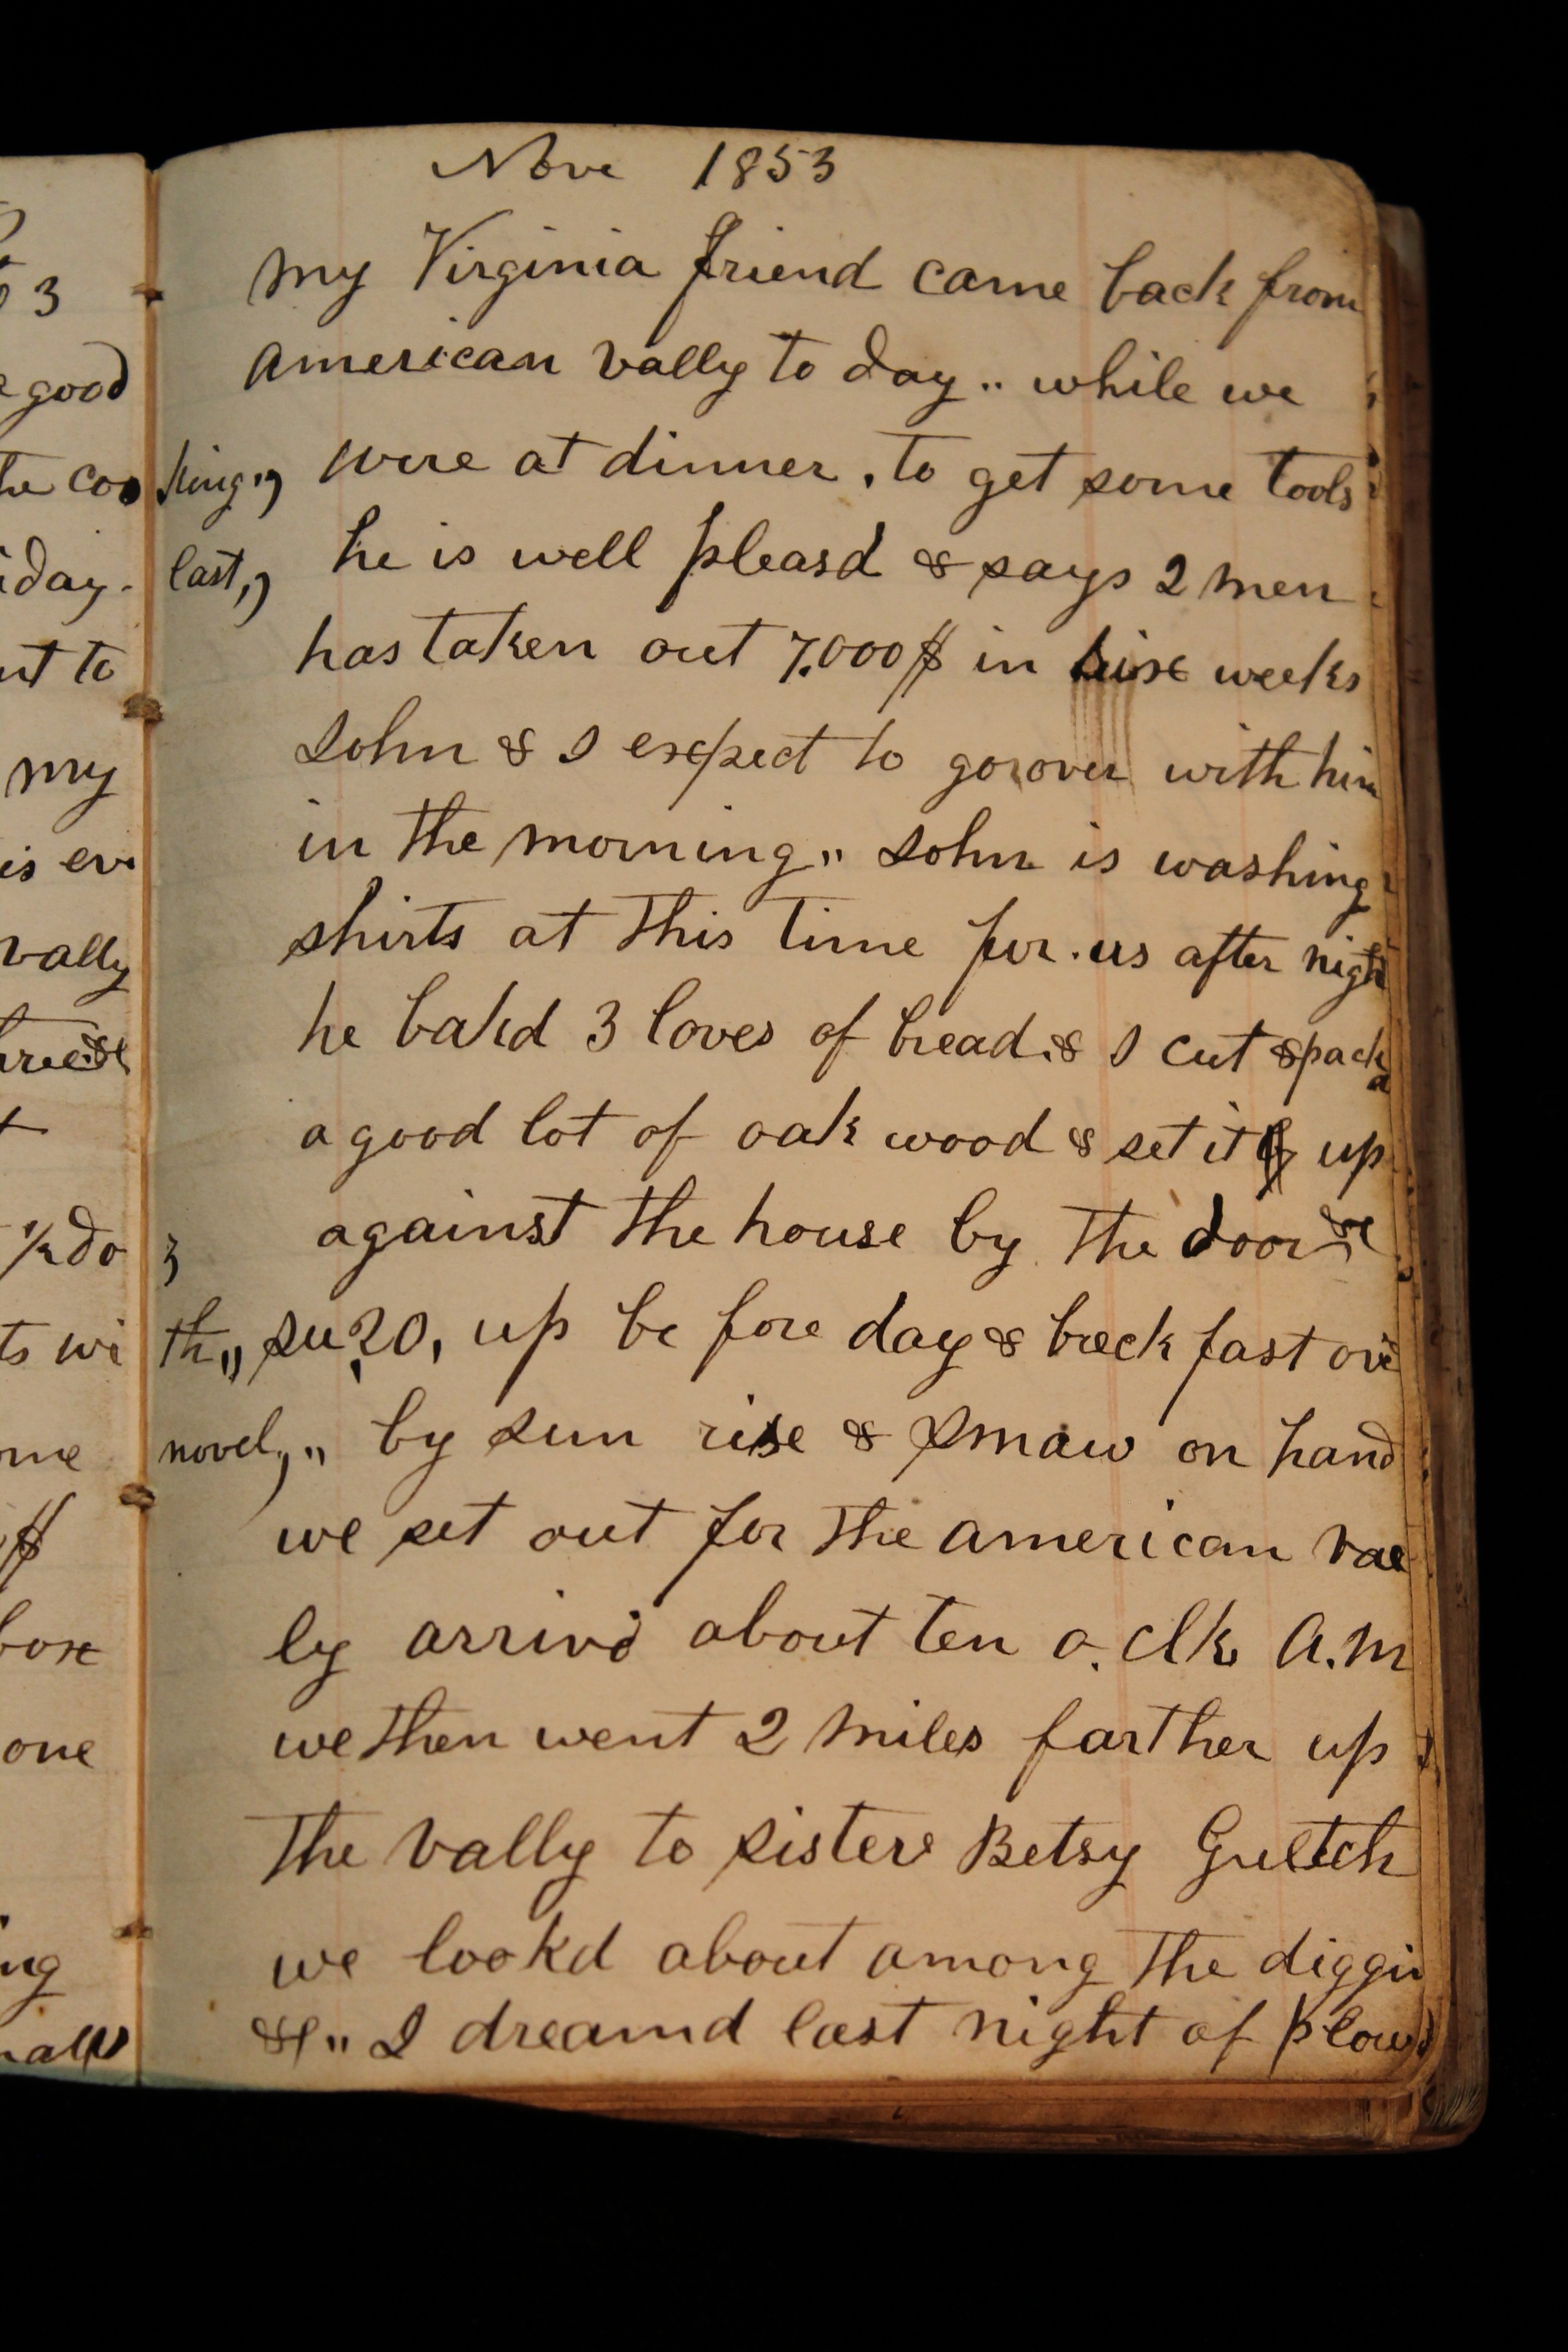 3
good
the coo
iday.
ut to
my
is eve
vally
½ do
ts wi
ome
$
box
one
ng
Nove 1853
my Virginia friend came back from
american vally to day ,, while we
king ,, were at dinner . to get some tools
last ,, he is well pleasd & says 2 men
has taken out 7.000$ in weeks
John & I expect to go over with him
in the morning ,, John is washing
shirts at this time for us after night
he bakd 3 loves of bread & I cut & pack a
a good lot of oak wood & set it up
against the house by the door &c
3
th ,, su 20, up be fore day & breck fast ovr
novel, ,, by sun rise & Smaw on hand
we set out for the american val
ly arrivd about ten o. clk A.M
we then went 2 miles farther up
the vally to sisters Betsy Gultch
we lookd about among the diggin
&c ,, I dreamd last night of plowd